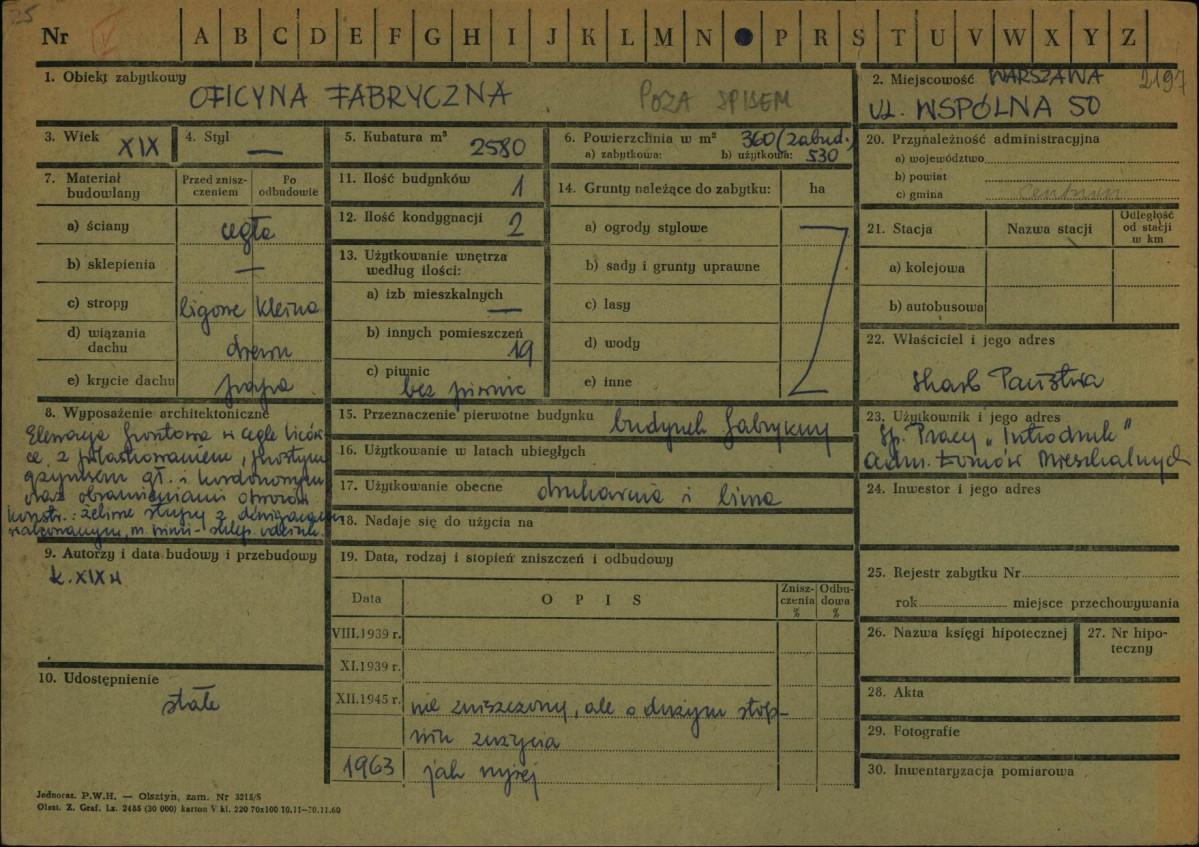 25
Nr A B C D E F G H I J K L M N P R S T U V W X Y Z
1. Obiekt zabytkowy
OFICYNA FABRYCZNA POZA SPISEM
2. Miejscowość WARSZAWA 2197
UL. WSPÓLNA 50
3. Wiek XIX
4. Styl —
5. Kubatura m³ 2580
6. Powierzchnia w m² 360 (zabud.)
a) zabytkowa: b) użytkowa: 530
7. Materiał budowlany
Przed zniszczeniem
Po odbudowie
a) ściany cegła
b) sklepienia —
c) stropy Kleina
d) wiązania dachu drewn
e) krycie dachu papa
8. Wyposażenie architektoniczne
Elewacja frontowa w cegle liców
ce z
gzymsem gł. i kordonowym
oraz obramieniami otworów
konstr.: żeliwne słupy z
9. Autorzy i data budowy i przebudowy
k. XIX w
10. Udostępnienie
stałe
11. Ilość budynków 1
12. Ilość kondygnacji 2
13. Użytkowanie wnętrza
według ilości:
a) izb mieszkalnych —
b) innych pomieszczeń 19
c) piwnic
bez piwnic
14. Grunty należące do zabytku: ha
a) ogrody stylowe
b) sady i grunty uprawne
c) lasy
d) wody
e) inne
15. Przeznaczenie pierwotne budynku budynek fabryczny
16. Użytkowanie w latach ubiegłych
17. Użytkowanie obecne drukarnia i
18. Nadaje się do użycia na
19. Data, rodzaj i stopień zniszczeń i odbudowy
Data OPIS Zniszczenia % Odbudowa %
VIII.1939 r.
XI.1939 r.
XII.1945 r. nie zniszczony, ale o dużym stop-
niu zużycia
1963 jak wyżej
20. Przynależność administracyjna
a) województwo
b) powiat
c) gmina Centrum
21. Stacja Nazwa stacji Odległość od stacji w km
a) kolejowa
b) autobusowa
22. Właściciel i jego adres
Skarb Państwa
23. Użytkownik i jego adres
Sp. Pracy „Introdruk"
Adm. Domów Mieszkalnych
24. Inwestor i jego adres
25. Rejestr zabytku Nr
rok miejsce przechowywania
26. Nazwa księgi hipotecznej
27. Nr hipoteczny
28. Akta
29. Fotografie
30. Inwentaryzacja pomiarowa
Jednoraz. P.W.H. — Olsztyn, zam. Nr 3215/S
Olszt. Z. Graf. Lx. 2485 (30 000) karton V kl. 220 70x100 10.11—20.11.60